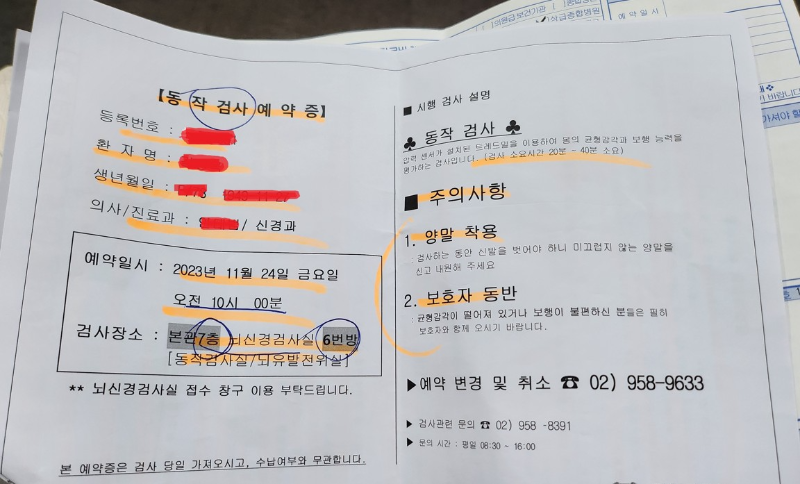 【동 작 검사 예 약 증】
등록번호 :
환 자 명 :
생년월일 :
의사/진료과 : / 신경과
예약일시 : 2023년 11월 24일 금요일
오전 10시 00분
검사장소 : 본관7층 뇌신경검사실 6번방
[동작검사실/뇌유발전위실]
** 뇌신경검사실 접수 창구 이용 부탁드립니다.
본 예약증은 검사 당일 가져오시고, 수납여부와 무관합니다.
■ 시행 검사 설명
♣ 동작 검사 ♣
압력 센서가 설치된 트레드밀을 이용하여 몸의 균형감각과 보행 능력을
평가하는 검사입니다. (검사 소요시간 20분 - 40분 소요)
■ 주의사항
1. 양말 착용
검사하는 동안 신발을 벗어야 하니 미끄럽지 않는 양말을
신고 내원해 주세요
2. 보호자 동반
균형감각이 떨어져 있거나 보행이 불편하신 분들은 필히
보호자와 함께 오시기 바랍니다.
▶예약 변경 및 취소 ☎ 02) 958-9633
▶ 검사관련 문의 ☎ 02) 958 -8391
▶ 문의 시간 : 평일 08:30 ~ 16:00
예 약 일 시